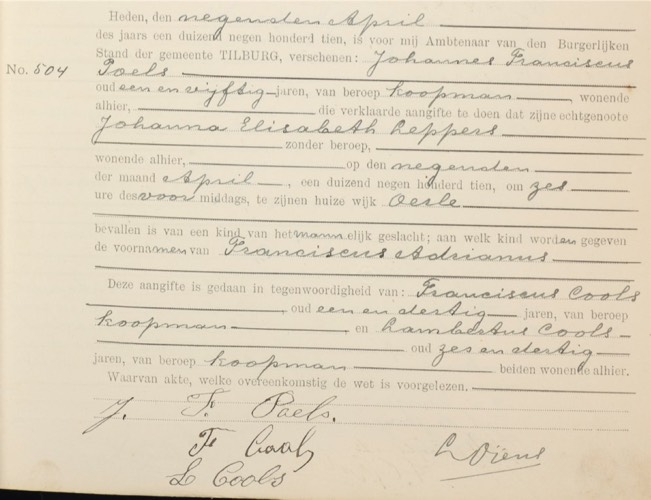 Heden, den negenden April
des jaars een duizend negen honderd tien, is voor mij Ambtenaar van den Burgerlijken
Stand der gemeente TILBURG, verschenen: Johannes Franciscus
No. 504 Paels
oud een en vijftig jaren, van beroep koopman, wonende
alhier, die verklaarde aangifte te doen dat zijne echtgenoote
Johanna Elisabeth Leppers
zonder beroep,
wonende alhier, op den negenden
der maand April, een duizend negen honderd tien, om zes
ure des voor middags, te zijnen huize wijk Oerle
bevallen is van een kind van het mannelijk geslacht; aan welk kind worden gegeven
de voornamen van Franciscus Adrianus
Deze aangifte is gedaan in tegenwoordigheid van: Franciscus Cools
, oud een en dertig jaren, van beroep
koopman, en Lambertus Cools
oud zes en dertig
jaren, van beroep koopman beiden wonende alhier.
Waarvan akte, welke overeenkomstig de wet is voorgelezen.
J. F. Paels.
F Cools
L Cools